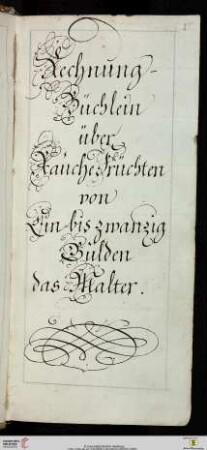 Rechnung-
Büchlein
über
Rauche Früchten
von
Ein bis zwanzig
Gulden
das Malter.